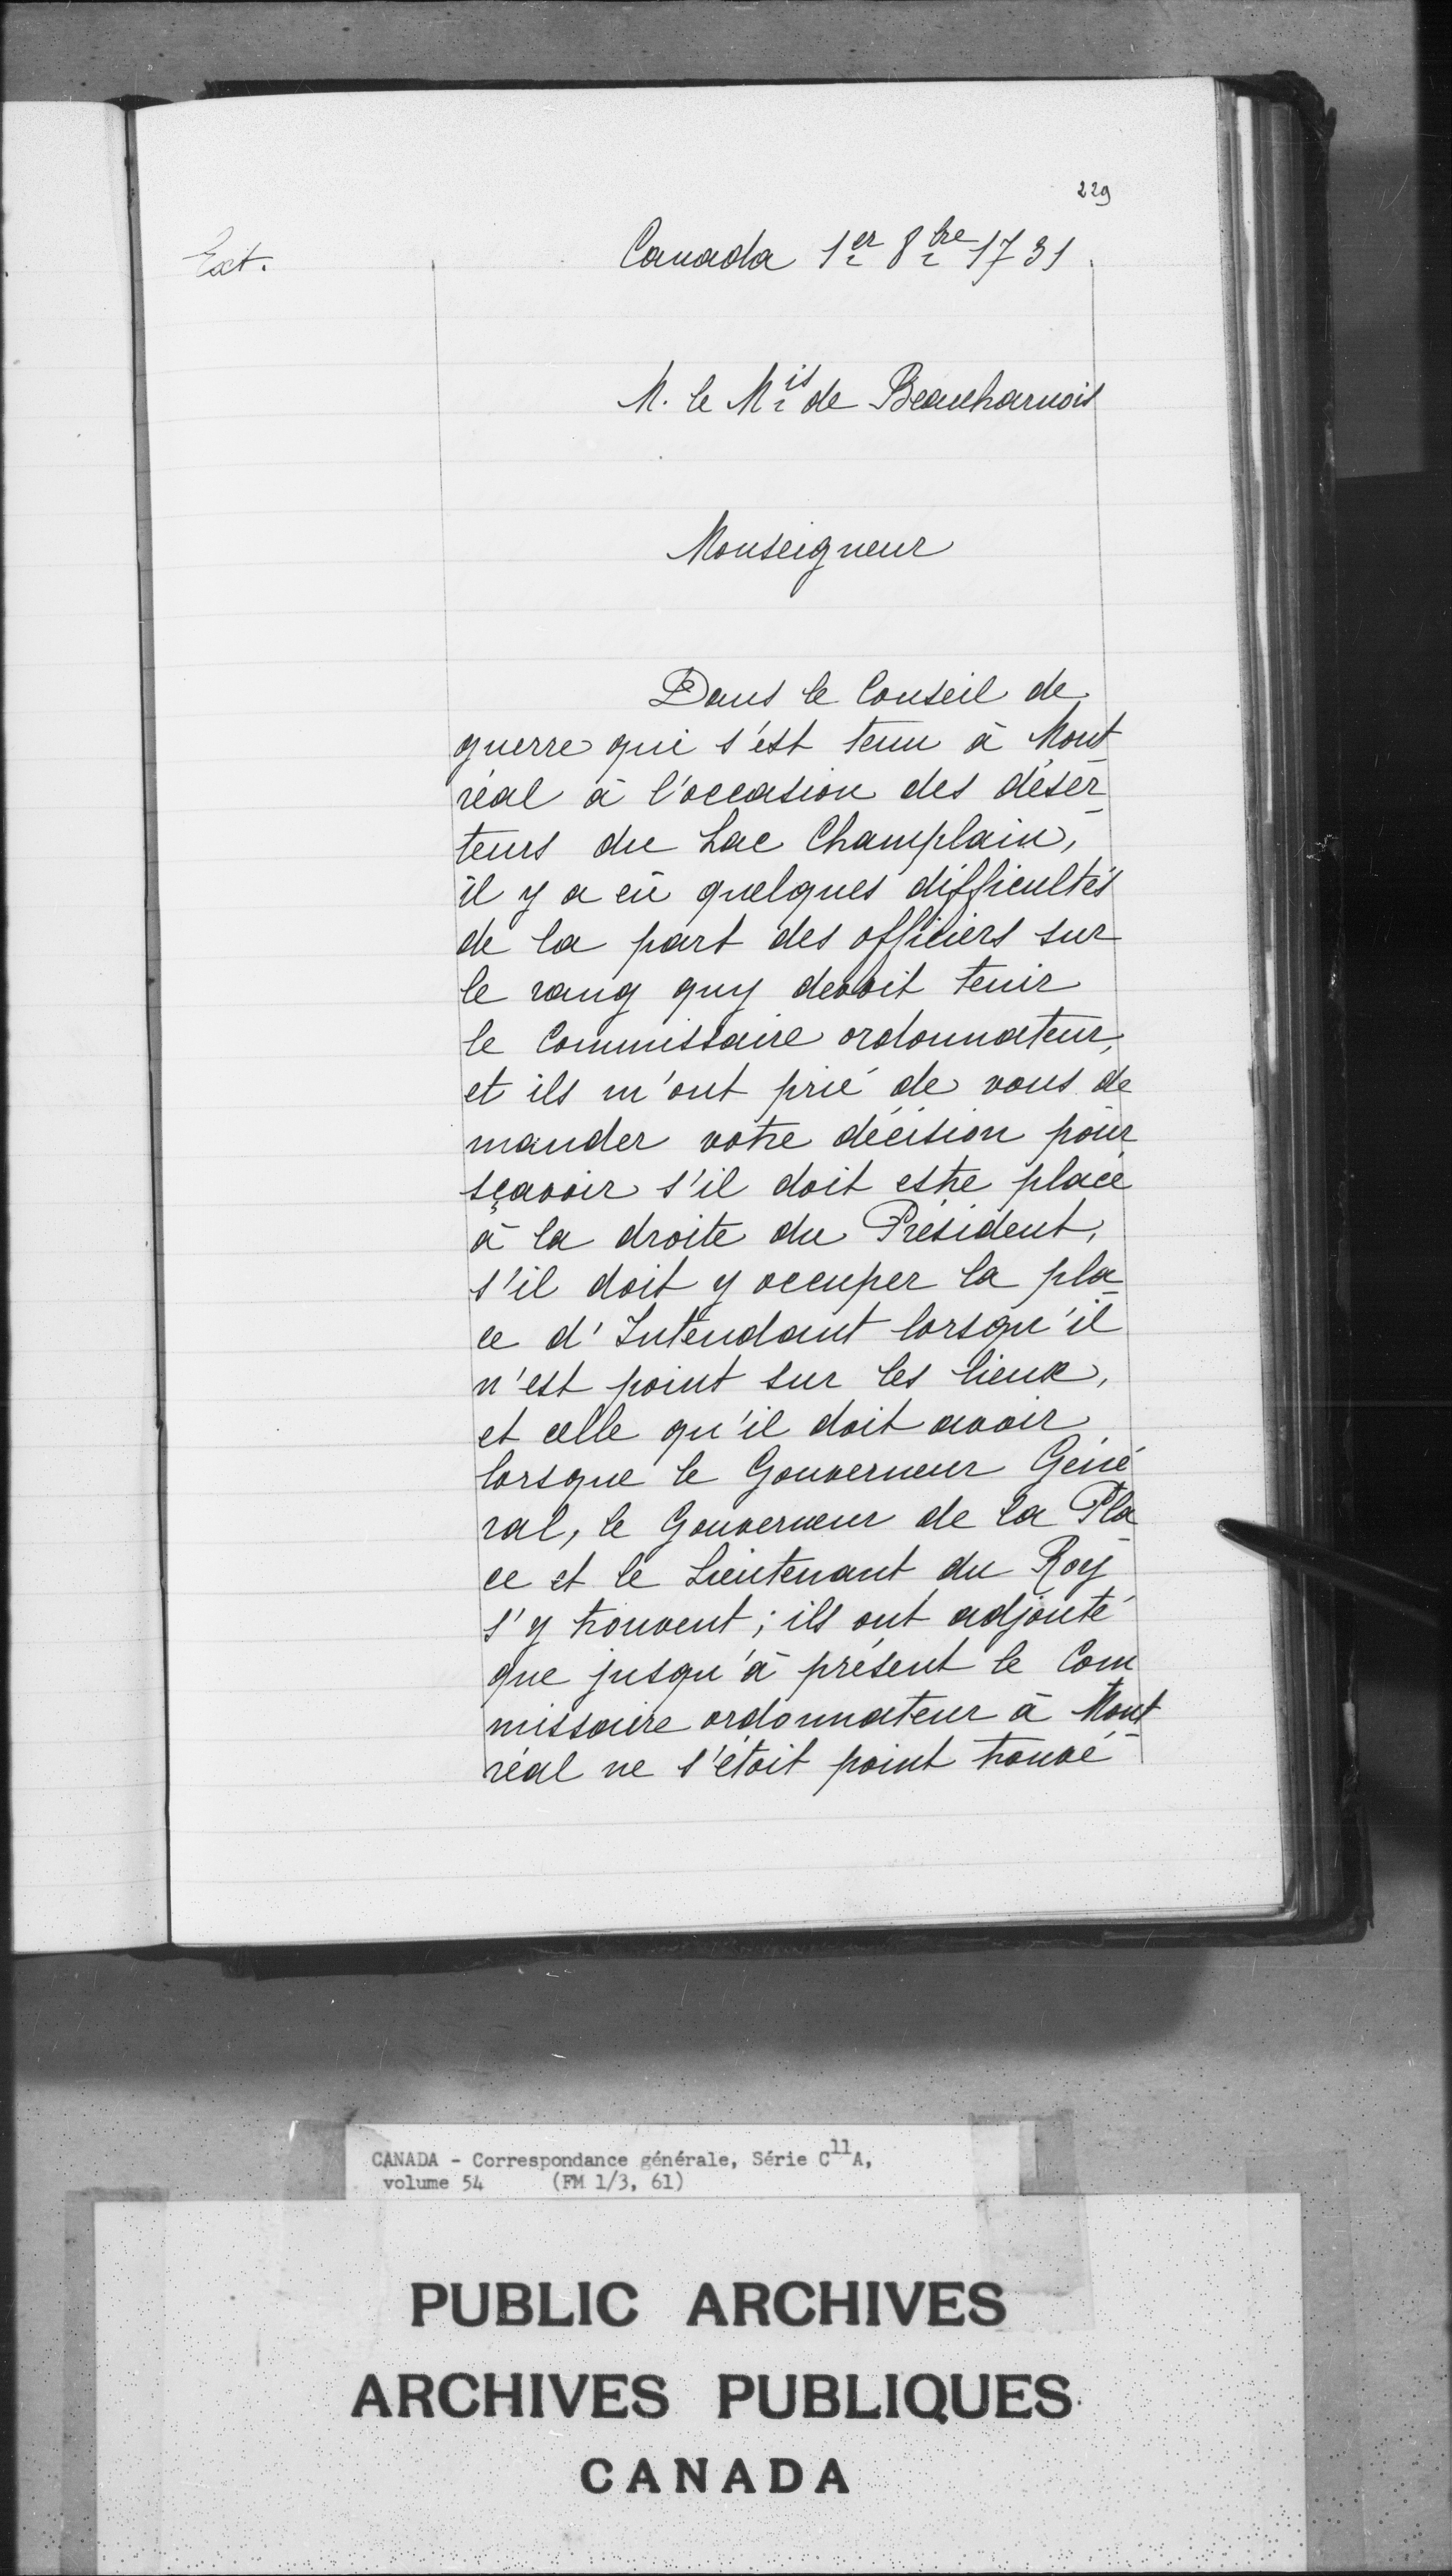 229
Ext.
Canada 1er 8bre 1731
M. le Mis de Beauharnois
Monseigneur
Dans le Conseil de
guerre qui s'est tenu à Mont
réal à l'occasion des déser_
teurs du Lac Champlain,
il y a eû quelques difficultés
de la part des officiers sur
le rang quy devoit tenir
le Commissaire ordonnateur,
et ils m'ont prié de vous de
mander votre décision pour
sçavoir s'il doit estre placé
à la droite du Président,
s'il doit y occuper la pla_
ce d'Intendant lorsqu'il
n'est point sur les lieux,
et celle qu'il doit avoir
lorsque le Gouverneur Géné
ral, le Gouverneur de la Pla_
ce et le Lieutenant du Roy
s'y trouvent; ils ont adjouté
que jusqu'à présent le Com
missaire ordonnateur à Mont_
réal ne s'étoit point trouvé
CANADA - Correspondance générale, Série C11A,
volume 54 (FM 1/3, 61)
PUBLIC ARCHIVES
ARCHIVES PUBLIQUES
CANADA